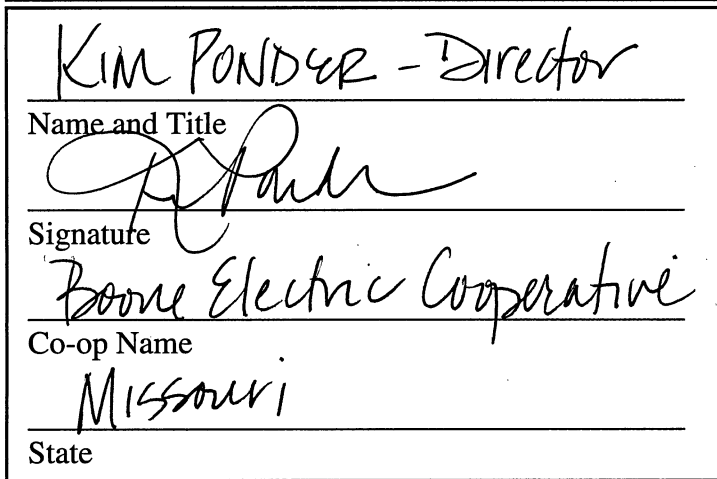 KIM PONDER - Director
Name and Title
K Ponder
Signature
Boone Electric Cooperative
Co-op Name
Missouri
State